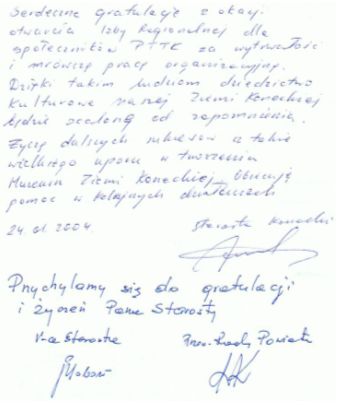 Serdeczne gratulacje z okazji
otwarcia Izby Regionalnej dla
społeczników PTTK za wytrwałość
i mrówczą pracę organizacyjną.
Dzięki takim ludziom dziedzictwo
kulturowe naszej Ziemi Koneckiej
będzie ocalone od zapomnienia.
Życzę dalszych sukcesów a także
wielkiego uporu w tworzeniu
Muzeum Ziemi Koneckiej, obiecuję
pomoc w kolejnych działaniach
24.01.2004. Starosta Konecki
Przychylamy się do gratulacji
i życzeń Pana Starosty
V-ce Starosta Przew. Rady Powiatu